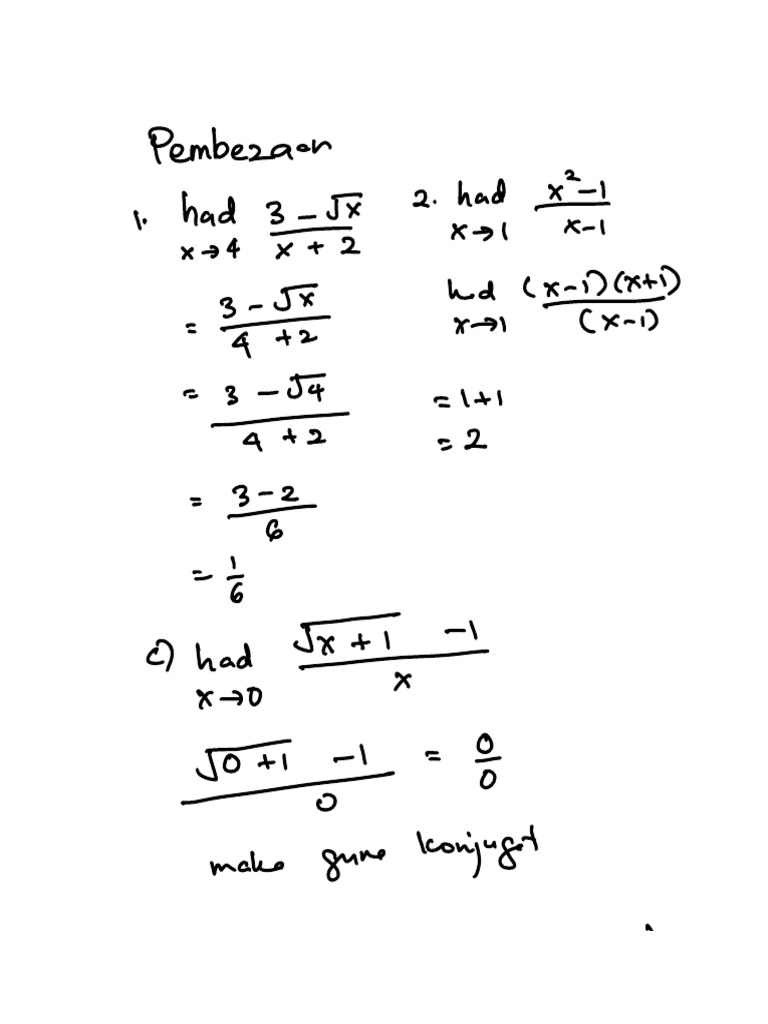 Pembezaan
1. had 3 - √x / x + 2
x→4
= 3 - √x / 4 + 2
= 3 - √4 / 4 + 2
= 3 - 2 / 6
= 1/6
2. had x² - 1 / x - 1
x→1
had (x-1)(x+1) / (x-1)
x→1
= 1+1
= 2
c) had √x + 1 - 1 / x
x→0
√0 + 1 - 1 / 0 = 0/0
maka guna konjugat